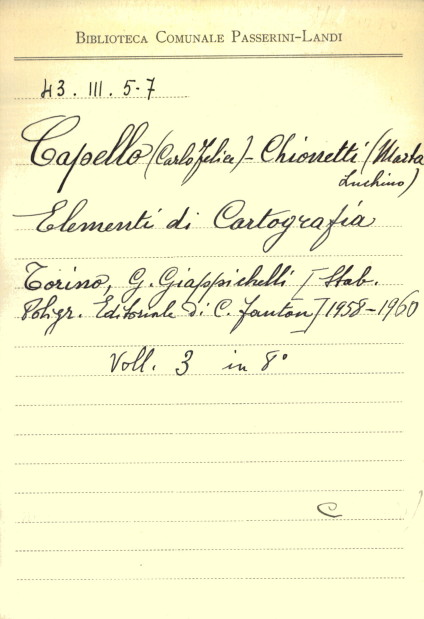 BIBLIOTECA COMUNALE PASSERINI-LANDI
43. III. 5-7
Capello (Carlo Felice) - Chionetti (Marta
Luchino)
Elementi di Cartografia
Torino, G. Giappichelli [Stab.
Poligr. Editoriale di C. Fanton] 1958-1960
Voll. 3 in 8°
C